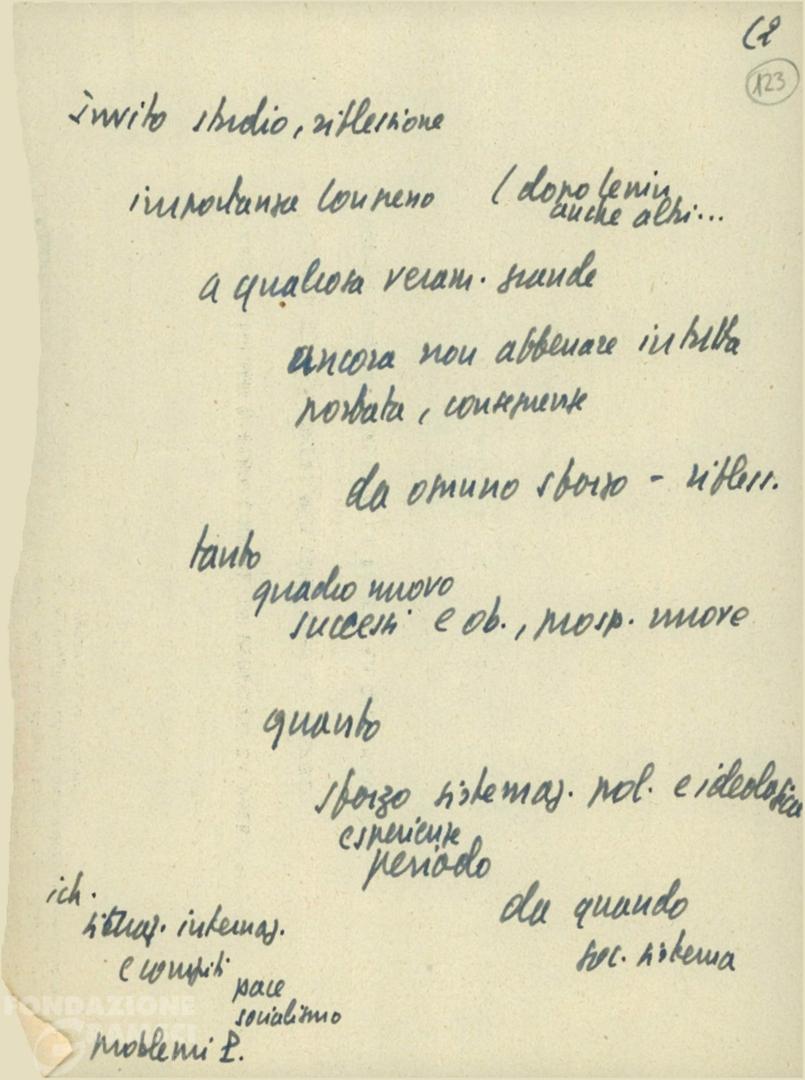 (2
123
invito studio, riflessione
importanza Congresso (dopo Lenin
anche altri...
a qualcosa veram. grande
ancora non abbenare in tutta
portata, conseguenze
da ognuno sforzo - rifless.
tanto
quadro nuovo
successi e ob., prosp. nuove
quanto
sforzo sistemaz. pol. e ideologica
esperienze
periodo
da quando
soc. sistema
ich.
situaz. internaz.
e compiti
pace
socialismo
problemi P.
FONDAZIONE
GRAMSCI